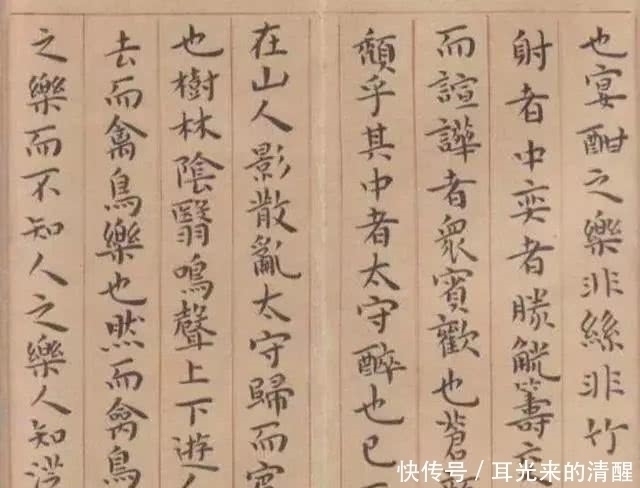 也宴酣之樂非絲非竹
射者中奕者勝觥籌交
而諠譁者衆賓歡也蒼
頹乎其中者太守醉也已
在山人影散亂太守歸而賓
也樹林陰翳鳴聲上下遊人
去而禽鳥樂也然而禽鳥
之樂而不知人之樂人知從
快传号/耳光来的清醒